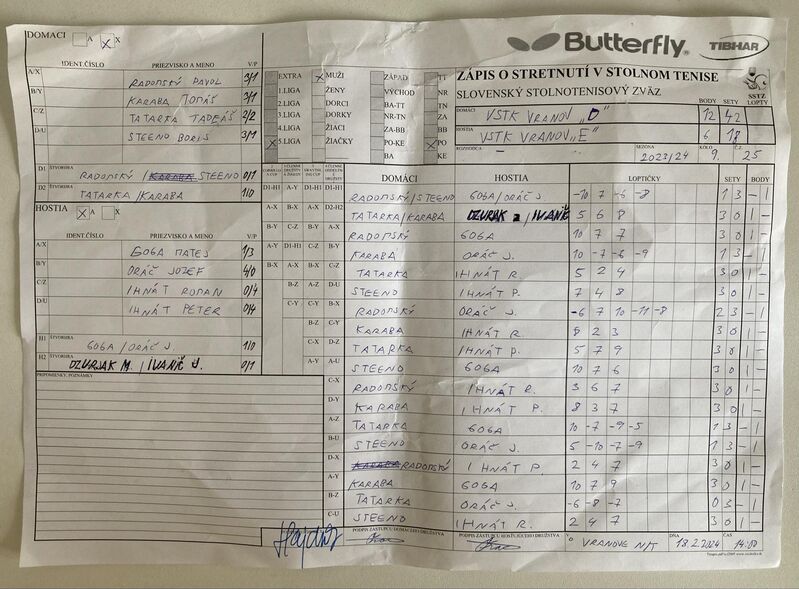 DOMACI A X
Butterfly TIBHAR
IDENT.ČÍSLO PRIEZVISKO A MENO V/P
A/X RADOMSKÝ PAVOL 3/1
B/Y KARABA TOMÁŠ 3/1
C/Z TATARKA TADEÁŠ 2/2
D/U STEENO BORIS 3/1
D1 ŠTVORHRA RADOMSKÝ / STEENO 0/1
D2 ŠTVORHRA TATARKA / KARABA 1/0
HOSTIA X A X
IDENT.ČÍSLO PRIEZVISKO A MENO V/P
A/X GOGA MATEJ 1/3
B/Y ORÁČ JOZEF 4/0
C/Z IHNÁT ROMAN 0/4
D/U IHNÁT PETER 0/4
H1 ŠTVORHRA GOGA / ORÁČ J. 1/0
H2 ŠTVORHRA DZURJAK M. / IVANIČ J. 0/1
PRIPOMIENKY, POZNÁMKY
EXTRA X MUŽI ZÁPAD TT
1.LIGA ŽENY VÝCHOD NR
2.LIGA DORCI BA-TT TN
3.LIGA DORKY NR-TN ZA
4.LIGA ŽIACI ZA-BB BB
X 5.LIGA ŽIAČKY PO-KE X PO
BA KE
ZÁPIS O STRETNUTÍ V STOLNOM TENISE
SLOVENSKÝ STOLNOTENISOVÝ ZVÄZ SSTZ
BODY SETY LOPTY
DOMÁCI VSTK VRANOV „D“ 12 42
HOSTIA VSTK VRANOV „E“ 6 17
ROZHODCA SEZÓNA 2023/24 KOLO 9. Č.Z. 25
DOMÁCI HOSTIA LOPTIČKY SETY BODY
D1-H1 A-Y D1-H1 D1-H1 RADOMSKÝ / STEENO GOGA / ORÁČ J -10 7 -6 -8 1 3 - 1
A-X B-X A-X D2-H2 TATARKA / KARABA DZURJAK / IVANIČ 5 6 8 3 0 1 -
B-Y C-Z B-Y A-X RADOMSKÝ GOGA 10 7 7 3 0 1 -
A-Y D1-H1 C-Z B-Y KARABA ORÁČ J. 10 -7 -6 -9 1 3 - 1
B-X A-X B-X C-Z TATARKA IHNÁT R. 5 2 4 3 0 1 -
B-Z A-Z D-U STEENO IHNÁT P. 7 4 8 3 0 1 -
C-Y C-Y B-X RADOMSKÝ ORÁČ J. -6 7 10 -11 -8 2 3 - 1
B-Z C-Y KARABA IHNÁT R. 8 2 3 3 0 1 -
C-X D-Z TATARKA IHNÁT P. 5 7 9 3 0 1 -
A-Y A-U STEENO GOGA 10 7 6 3 0 1 -
C-X RADOMSKÝ IHNÁT R. 3 6 7 3 0 1 -
D-Y KARABA IHNÁT P. 8 3 7 3 0 1 -
A-Z TATARKA GOGA 10 -7 -9 -5 1 3 - 1
B-U STEENO ORÁČ J. 5 -10 -7 -9 1 3 - 1
D-X RADOMSKÝ IHNÁT P. 2 4 7 3 0 1 -
A-Y KARABA GOGA 10 7 9 3 0 1 -
B-Z TATARKA ORÁČ J. -6 -8 -7 0 3 - 1
C-U STEENO IHNÁT R. 2 4 7 3 0 1 -
PODPIS ZÁSTUPCU DOMÁCEHO DRUŽSTVA PODPIS ZÁSTUPCU HOSŤUJÚCEHO DRUŽSTVA V VRANOVE N/T DŇA 18.2.2024 ČAS 14:00